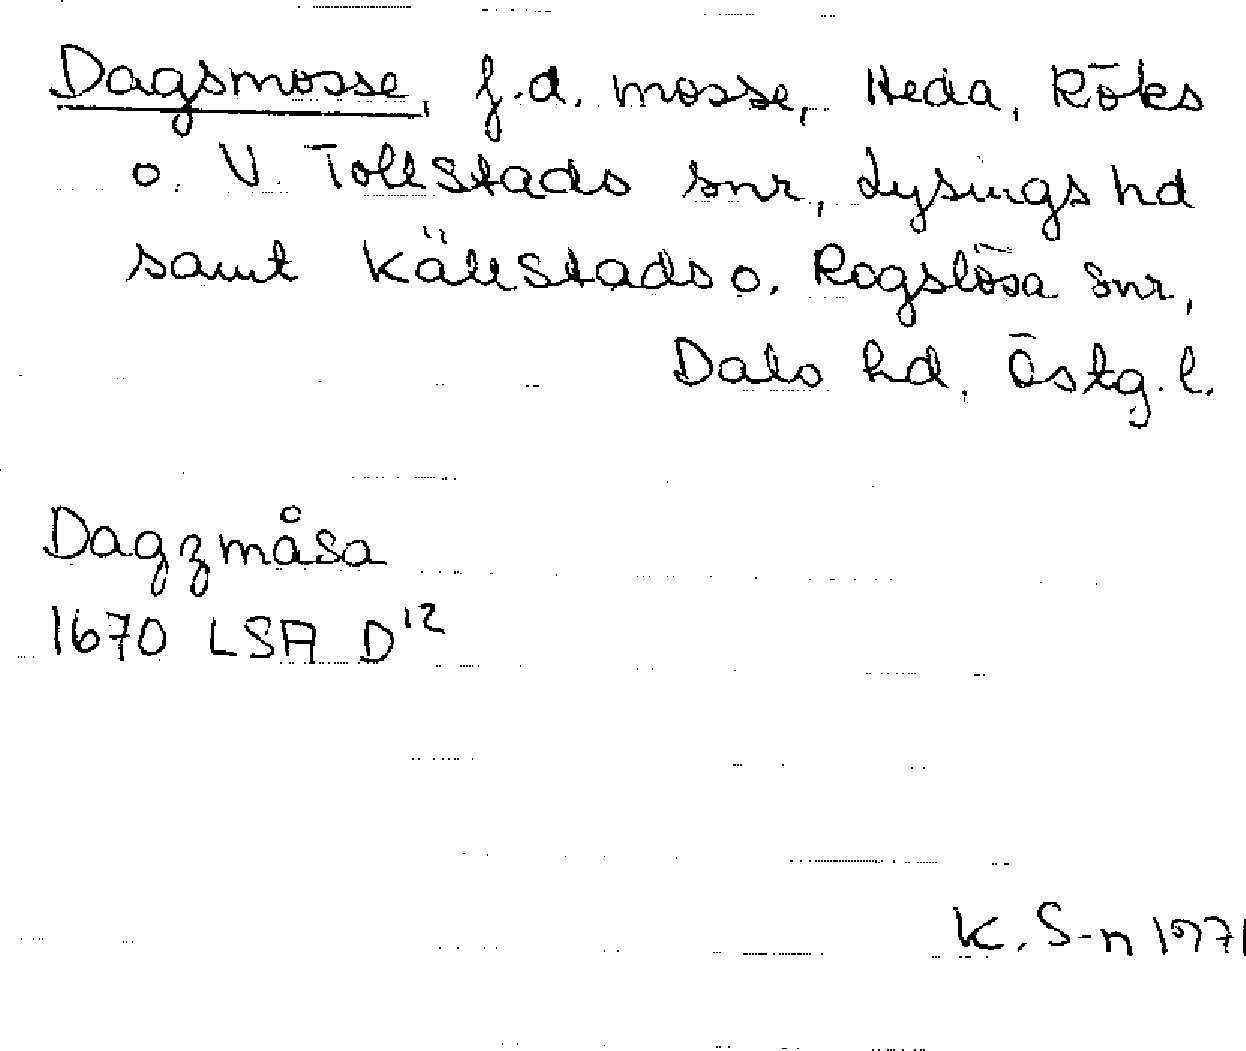 Dagsmosse, f.d. mosse, Heda, Röks
o. V. Tollstads snr, Lysings hd
samt Källstads o. Rogslösa snr,
Dals hd, Östg. l.
Dagzmåsa
1670 LSA D¹²
K. S-n 1971